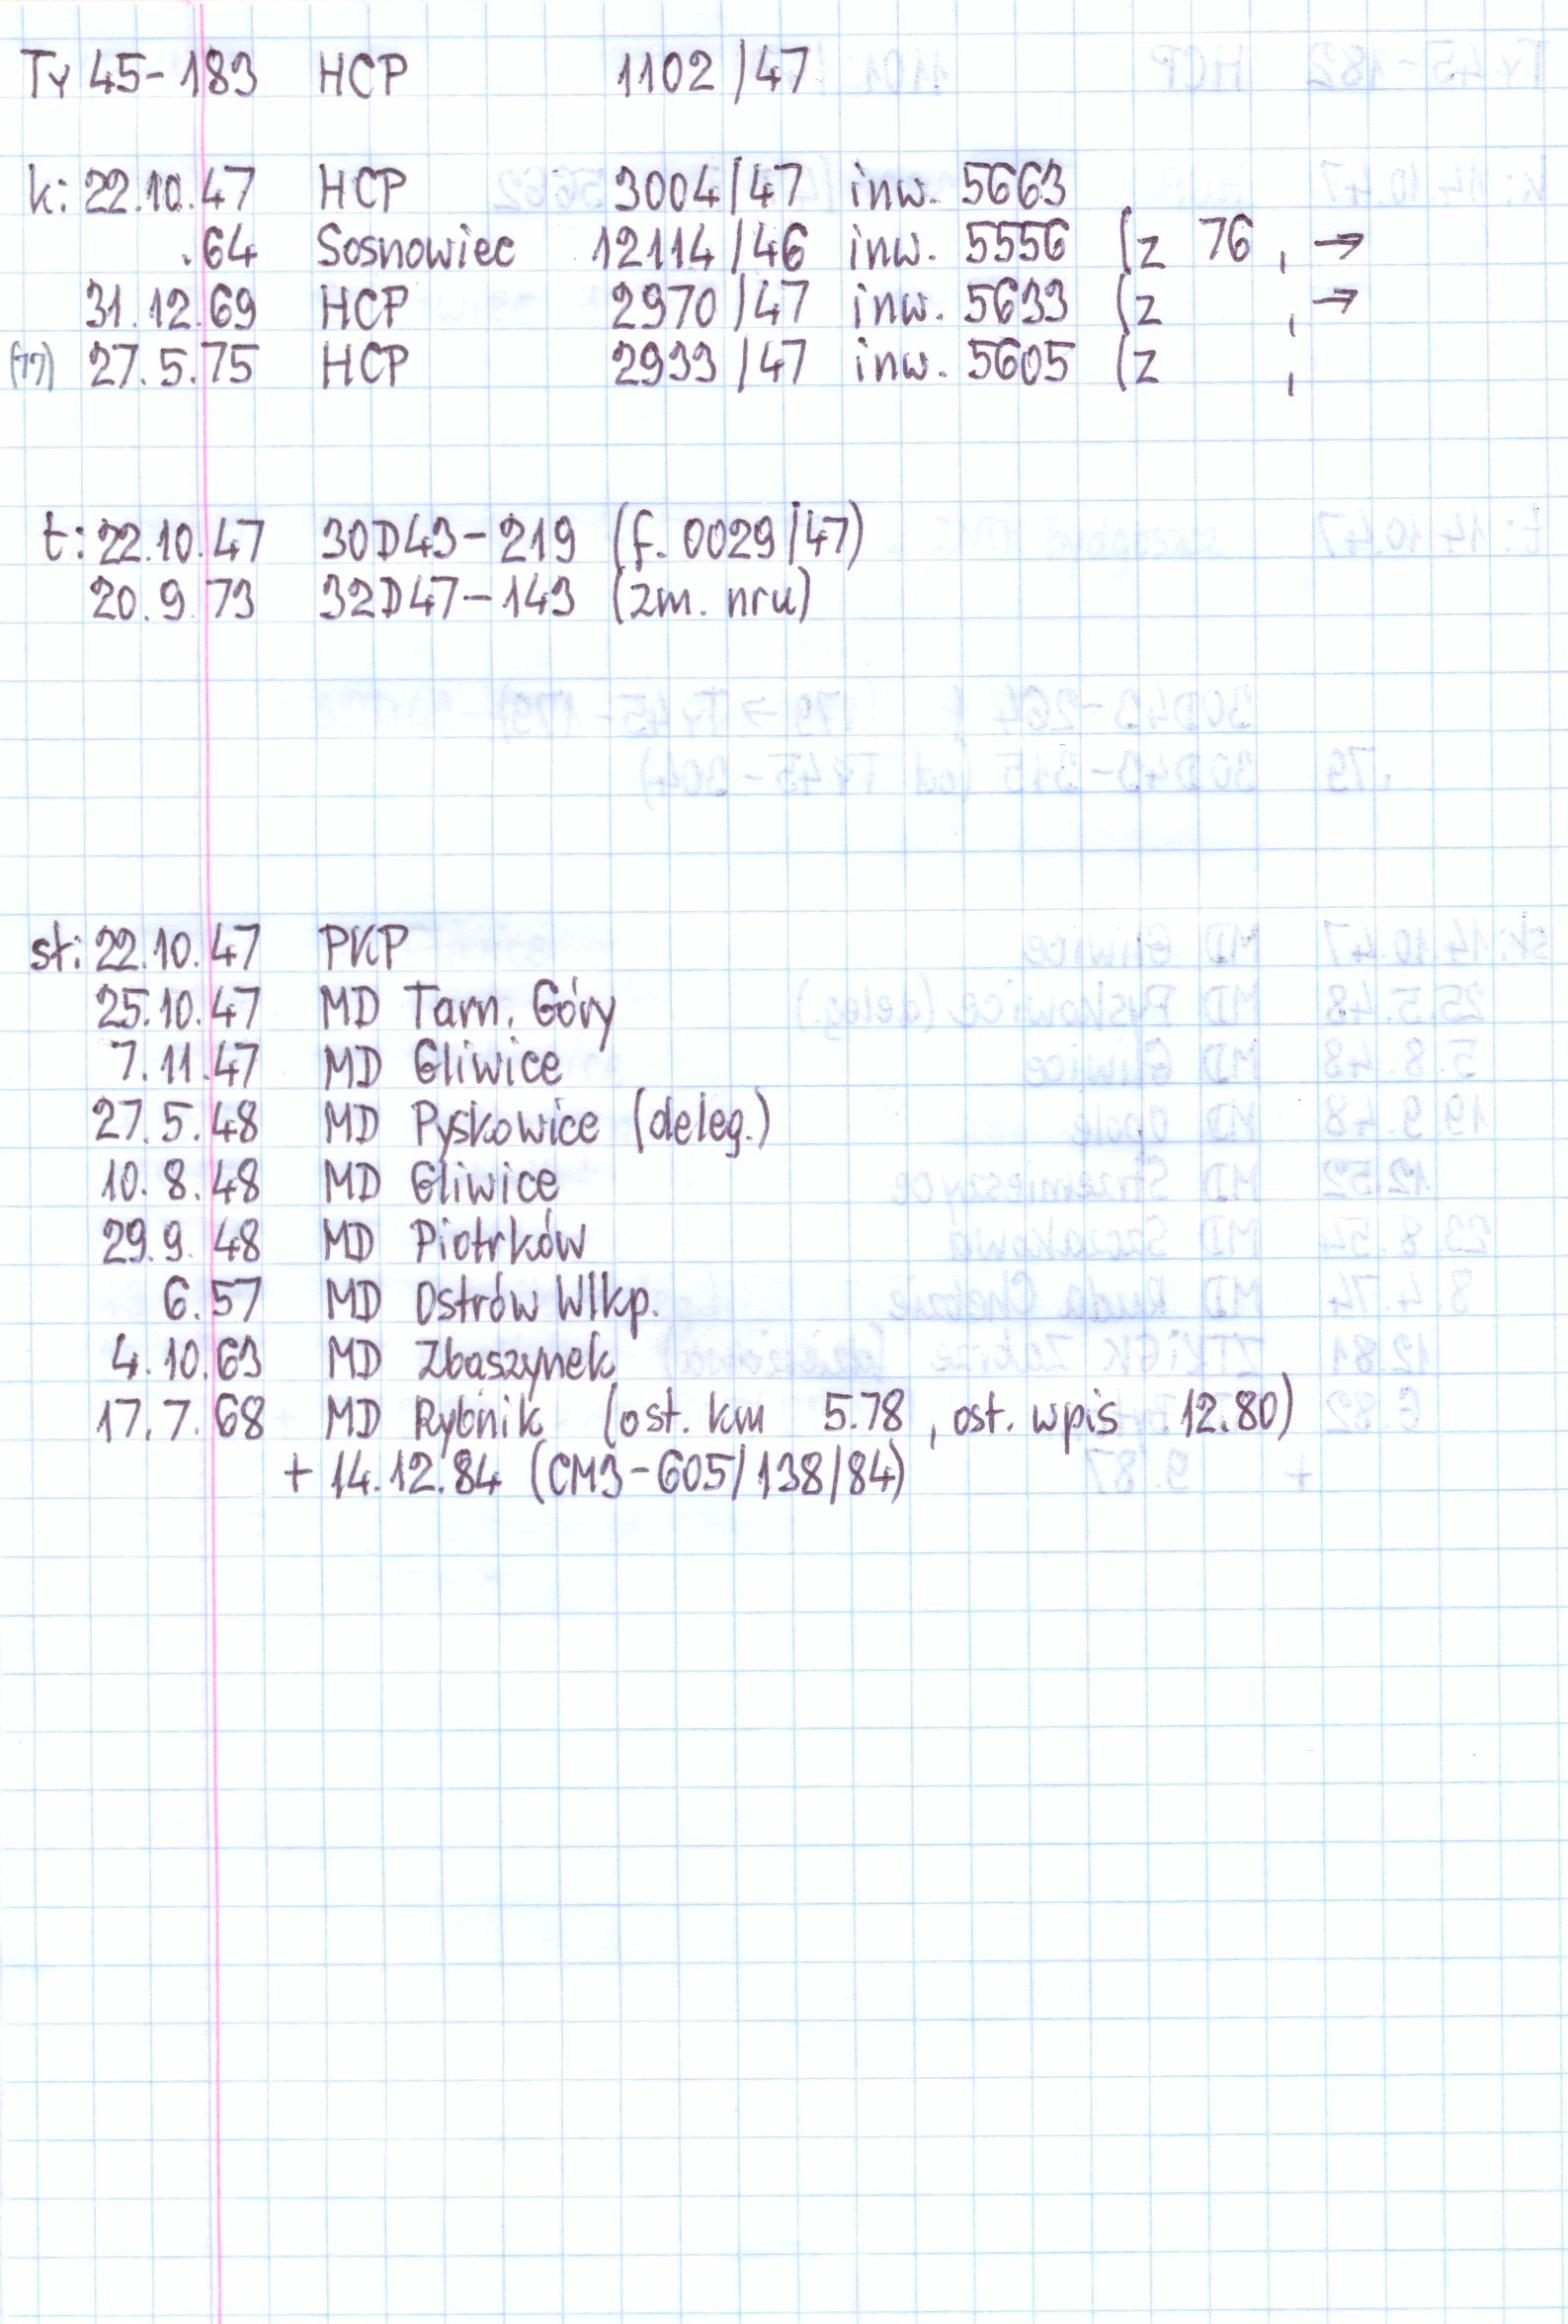 Ty 45-183 HCP 1102/47
k: 22.10.47 HCP 3004/47 inw. 5663
.64 Sosnowiec 12114/46 inw. 5556 (z 76, →
31.12.69 HCP 2970/47 inw. 5633 (z , →
(77) 27.5.75 HCP 2933/47 inw. 5605 (z ,
t: 22.10.47 30D43-219 (f. 0029/47)
20.9.73 32D47-143 (zm. nru)
st: 22.10.47 PKP
25.10.47 MD Tarn. Góry
7.11.47 MD Gliwice
27.5.48 MD Pyskowice (deleg.)
10.8.48 MD Gliwice
29.9.48 MD Piotrków
6.57 MD Ostrów Wlkp.
4.10.63 MD Zbąszynek
17.7.68 MD Rybnik (ost. km 5.78, ost. wpis 12.80)
+ 14.12.84 (CM3-605/138/84)